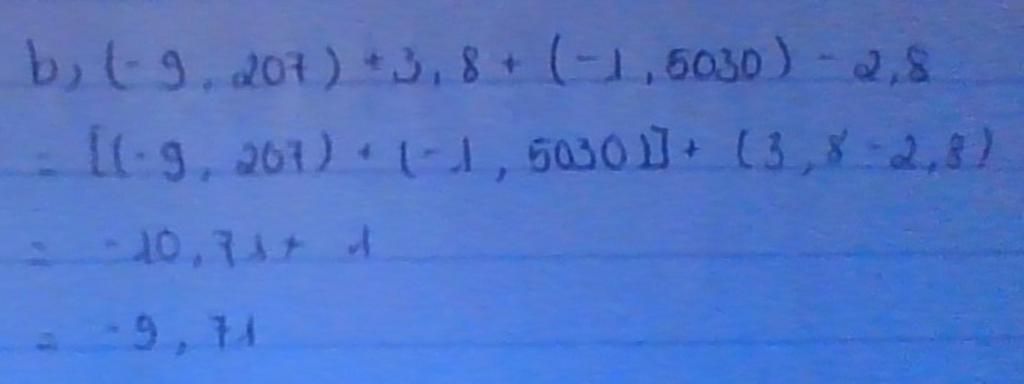 b, (-9, 207) + 3, 8 + (-1, 5030) - 2,8
= [(-9, 207) + (-1, 5030)] + (3, 8 - 2,8)
= -10, 71 + 1
= -9, 71